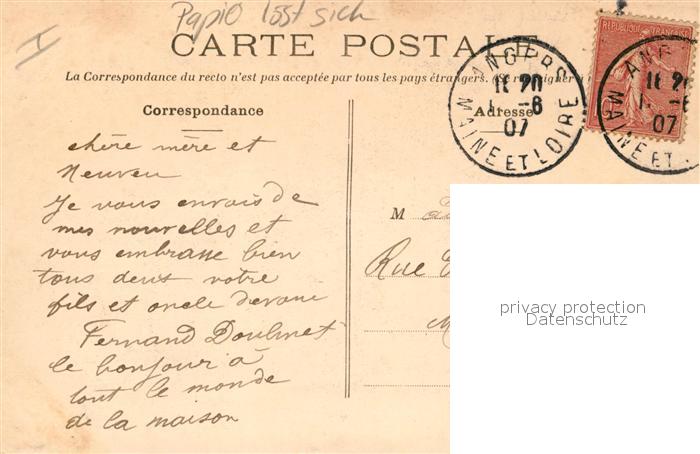 Papio löst sich
I
CARTE POSTALE
La Correspondance du recto n'est pas acceptée par tous les pays étrangers. (Se renseigner à
Correspondance
Adresse
RÉPUBLIQUE FRANÇAISE
ANGERS
16 20
1 -6
07
MAINE ET LOIRE
ANG
16 2
1 -6
07
MAINE ET
chère mère et
Neuveu
Je vous envois de
mes nouvelles et
vous embrasse bien
tous deux votre
fils et oncle
Fernand
le bonjour à
tout le monde
de la maison
M
Rue
privacy protection
Datenschutz